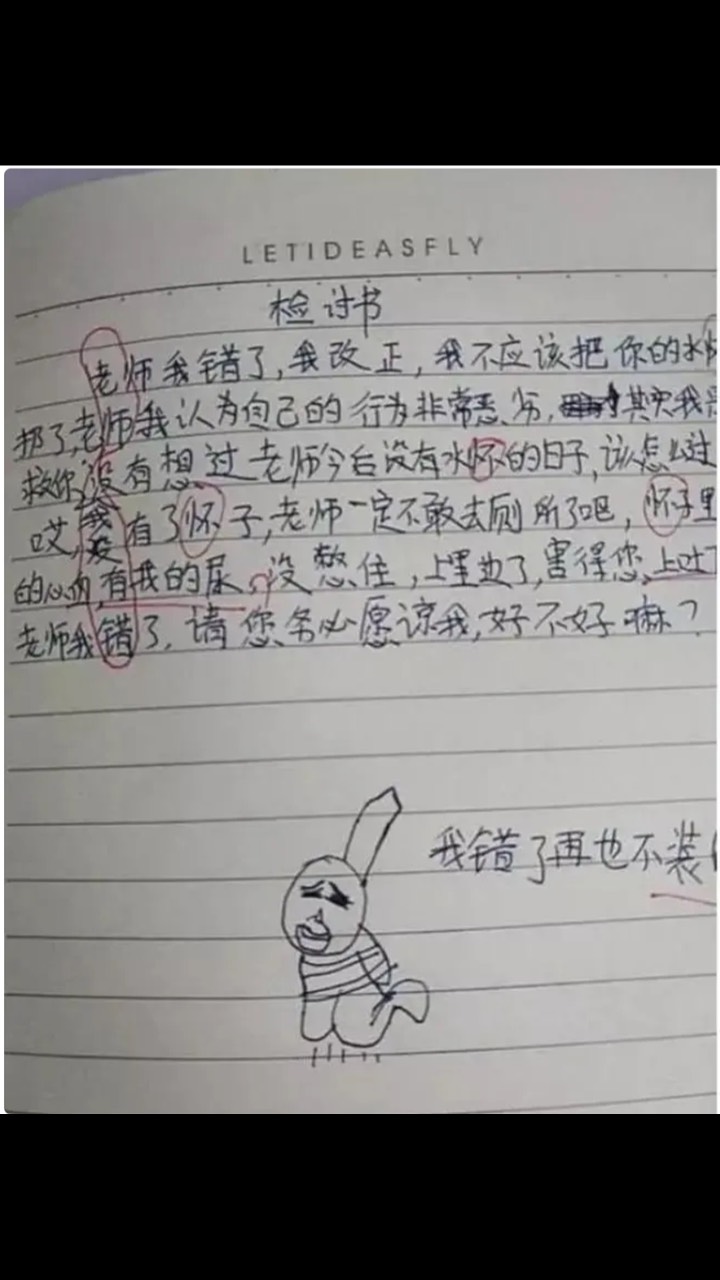 LETIDEASFLY
检讨书
老师我错了，我改正，我不应该把你的水
了，老师我认为自己的行为非常恶劣，其实我
救你，没有想过老师今后没有水怀的日子，该怎么过
哎，我没有了怀子，老师一定不敢去厕所了吧，怀子里
的心血，有我的尿，没憋住，上里边了，害得您，上吐
老师我错了，请您务必愿谅我，好不好嘛？
我错了再也不装